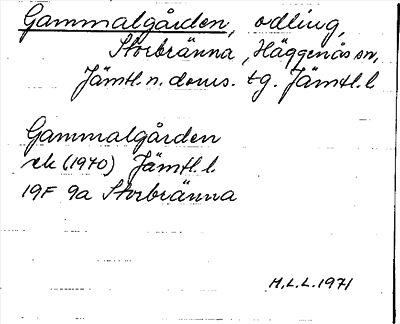 Gammalgården, odling,
Storbränna, Häggenås sn,
Jämtl. n. doms. tg. Jämtl. l
Gammalgården
ek (1970) Jämtl. l.
19F 9a Storbränna
H.L.L. 1971